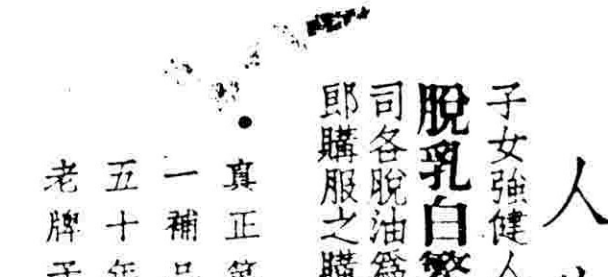 人
子女強健人
脫乳白鰵
司各脫油爲
郎購服之購
真正第
一補品
五十年
老牌子